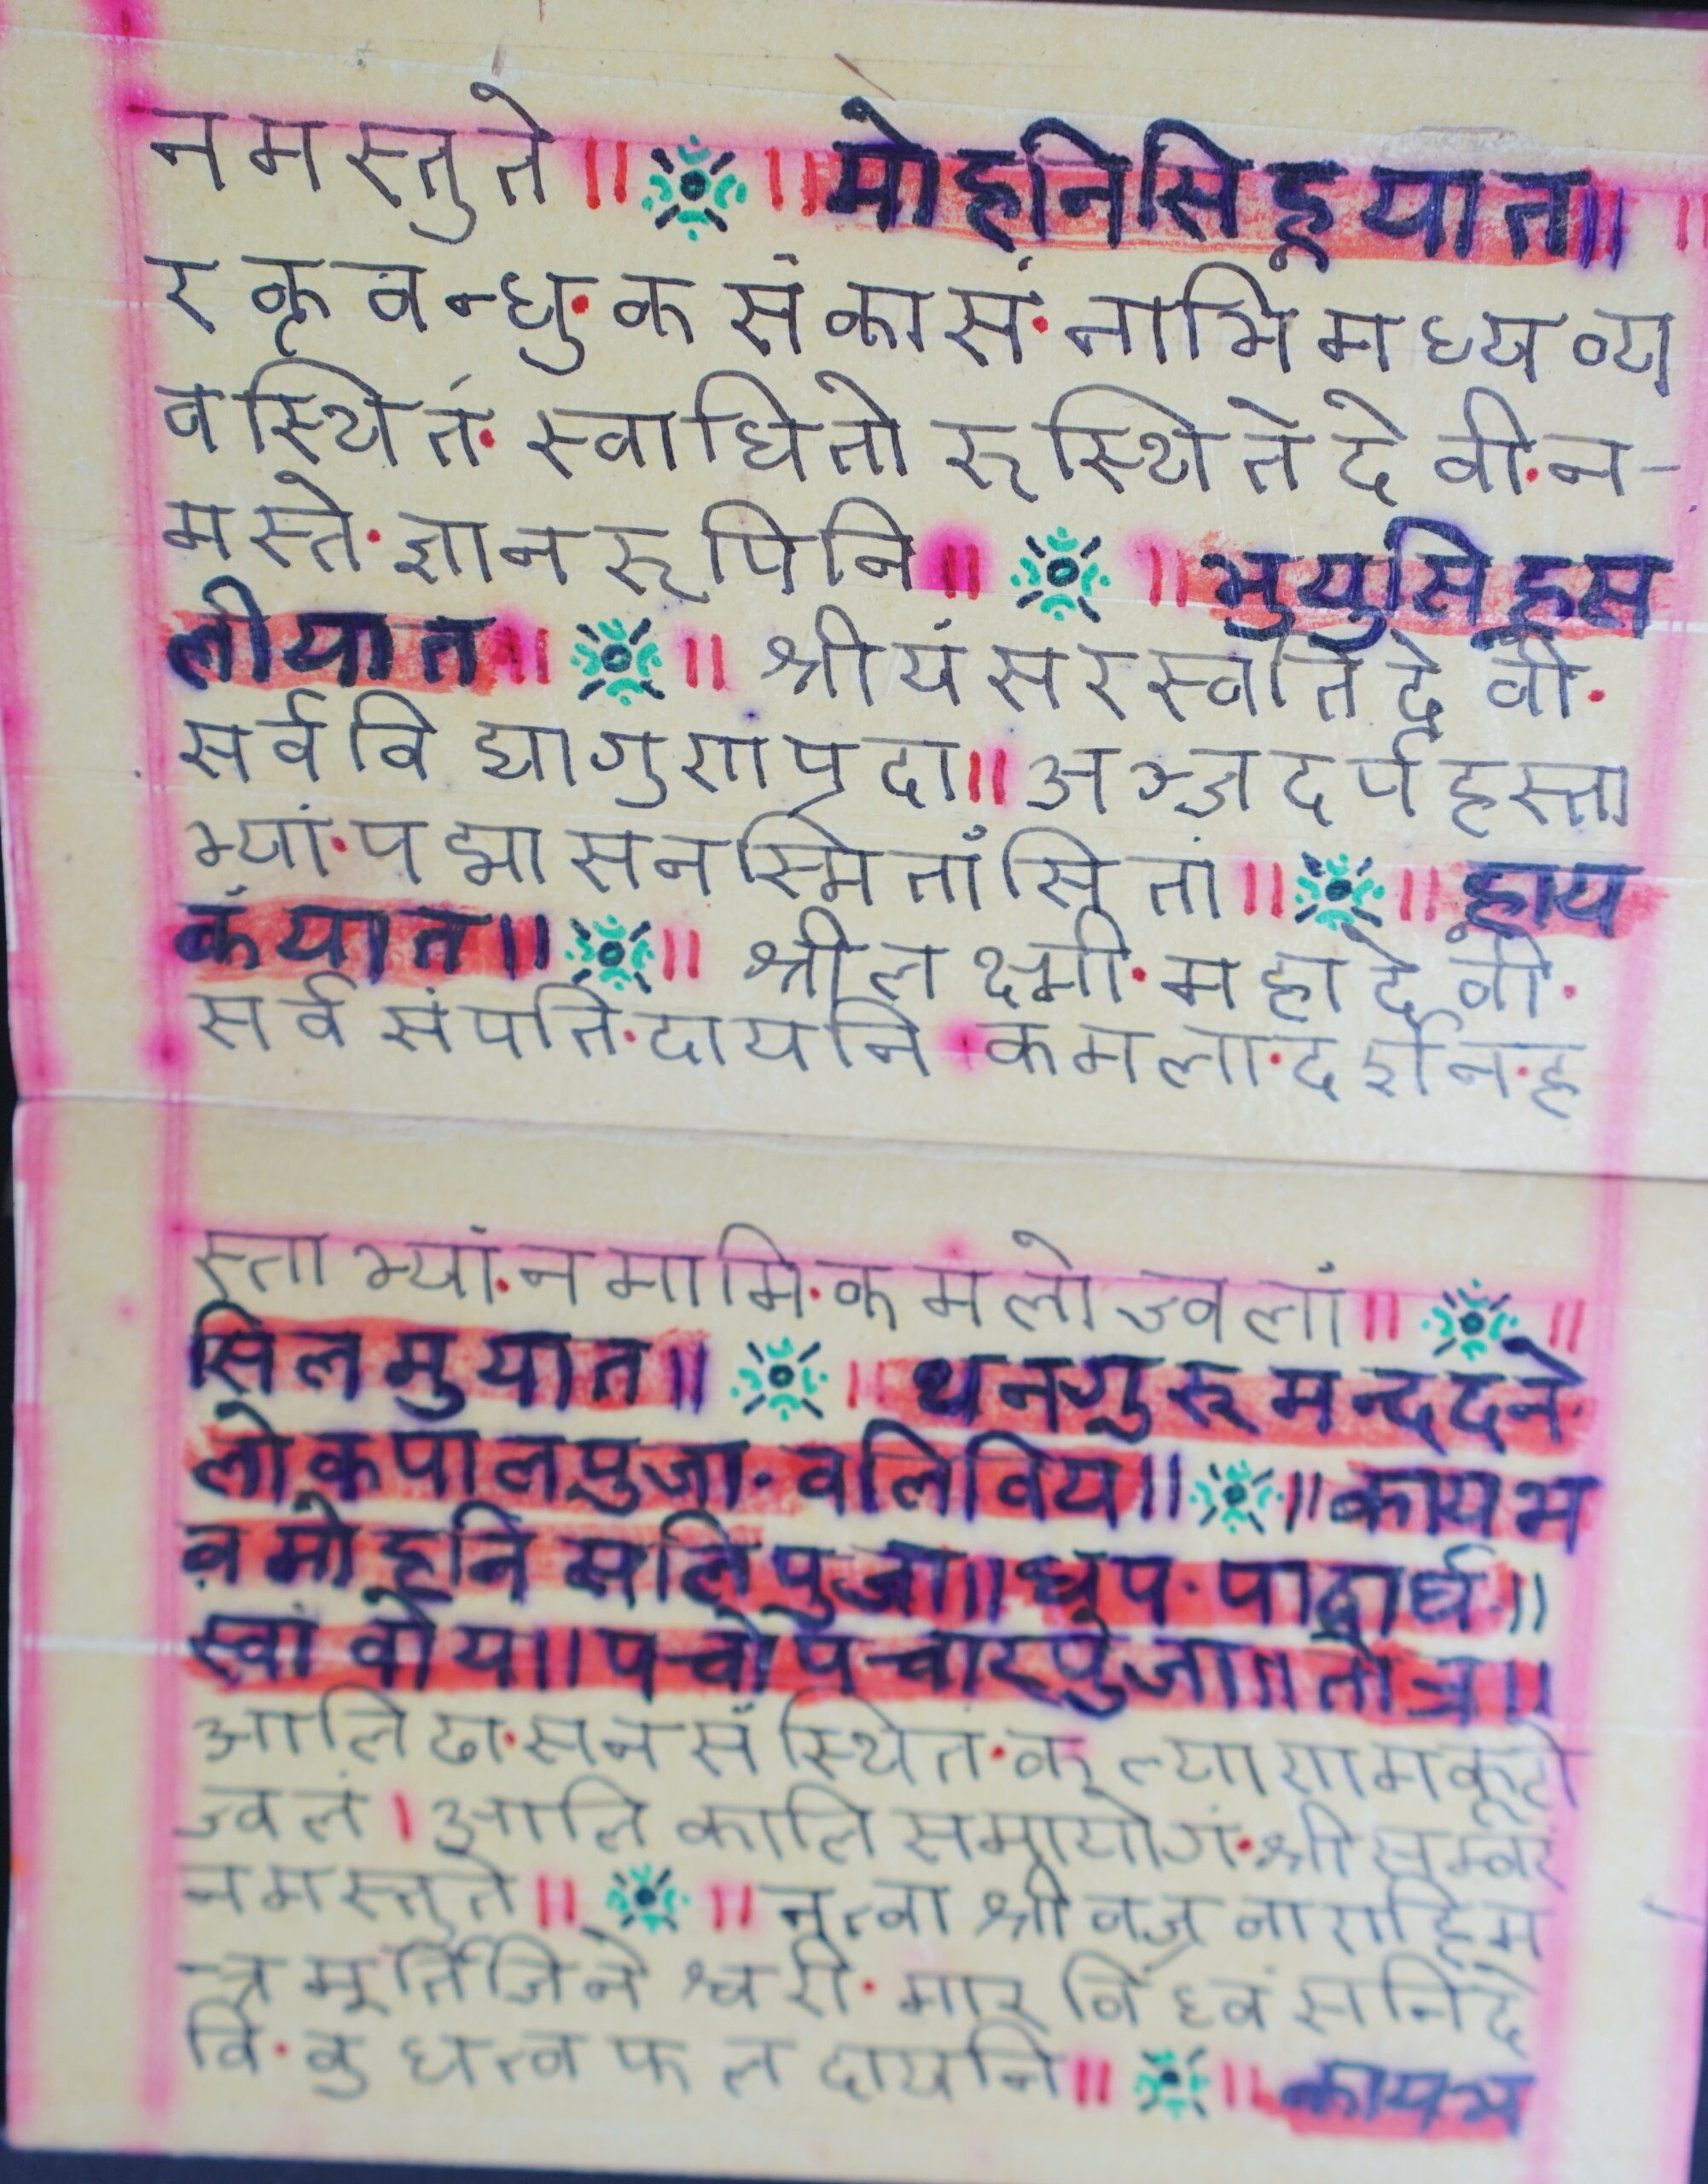 नमस्तुते॥ ॥मोहनिसिह्रयात॥ ॥
रक्तवन्धु·कसंकासं·नाभिमध्यव्य
वस्थितं·स्वाधितोरुस्थितेदेवी·न-
मस्ते·ज्ञानरूपिनि॥ ॥भुयुसिह्रस
लीयात॥ ॥ श्रीयंसरस्वतिदेवी·
सर्वविद्यागुणप्रदा॥अञ्जदर्पहस्ता
भ्यां·पद्मासनस्मितांसितां॥ ॥ह्राय
कंयात॥ ॥ श्रीलक्ष्मी·महादेवी·
सर्वसंपति·दायनि·कमला·दर्शन·ह
स्ताभ्यां·नमामि·कमलोज्वलां॥ ॥
सिलमुयात॥ ॥थनगुरुमन्ददने·
लोकपालपुजा·वलिविय॥ ॥कायभ
वमोहनिसलिपुजा॥धूप·पाद्वार्घ·॥
स्वांवोय॥पचोपचारपुजा॥तोत्र॥
आलिढा·सनसंस्थितं·कल्याणमकूटो
ज्वलं।आलिकालिसमायोगं·श्रीसम्वरं
नमस्तुते॥ ॥नत्वाश्रीवज्रवाराहिम
न्त्रमूर्तिजिनेश्वरी·मारविध्वंसनिदे
वि·वुधत्वफलदायनि॥ ॥कायभ